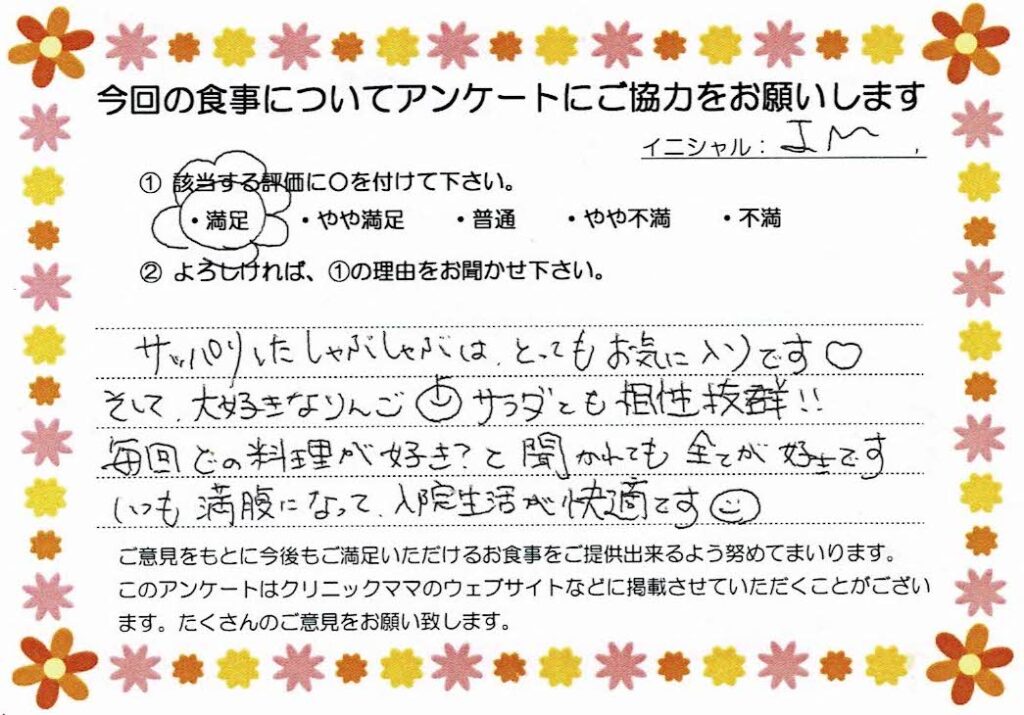 今回の食事についてアンケートにご協力をお願いします
イニシャル： I M
① 該当する評価に〇を付けて下さい。
・満足 ・やや満足 ・普通 ・やや不満 ・不満
② よろしければ、①の理由をお聞かせ下さい。
サッパリしたしゃぶしゃぶは、とってもお気に入りです♡
そして、大好きなりんご サラダとも相性抜群!!
毎回どの料理が好き？と聞かれても全てが好きです
いつも満腹になって、入院生活が快適です
ご意見をもとに今後もご満足いただけるお食事をご提供出来るよう努めてまいります。
このアンケートはクリニックママのウェブサイトなどに掲載させていただくことがござい
ます。たくさんのご意見をお願い致します。